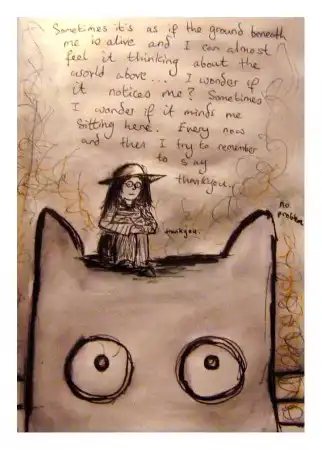 Sometimes it's as if the ground beneath
me is alive and I can almost
feel it thinking about the
world above... I wonder if
it notices me? Sometimes
I wonder if it minds me
sitting here. Every now
and then I try to remember
to say
thankyou.
thankyou.
no
problem